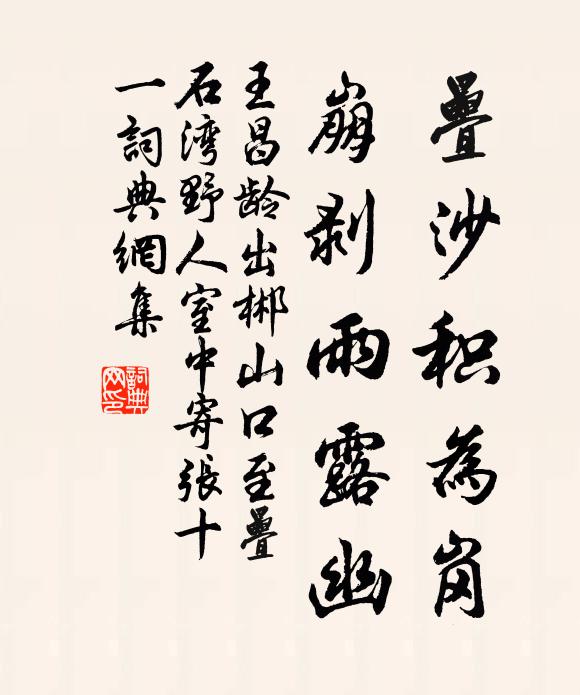 疊沙积為岗
崩剥雨露幽
王昌龄出郴山口至疊
石湾野人室中寄張十
一詞典網集
詞典
网印